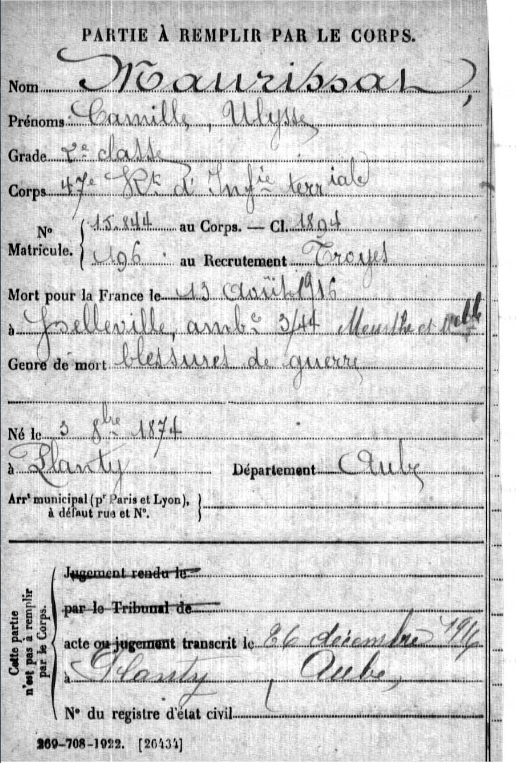 PARTIE À REMPLIR PAR LE CORPS.
Nom Maurissat
Prénoms Camille, Ulysse
Grade 2e classe
Corps 47e Rt d'Infie terriale
No Matricule. 15.844 au Corps. — Cl. 1894
196 au Recrutement Troyes
Mort pour la France le 13 Août 1916
à Gelleville, ambce 3/44 Meurthe et Melle
Genre de mort blessures de guerre
Né le 3 8bre 1874
à Planty Département Aube
Arrt municipal (pr Paris et Lyon),
à défaut rue et No.
Cette partie n'est pas à remplir par le Corps.
Jugement rendu le
par le Tribunal de
acte ou jugement transcrit le 26 décembre 1916
à Planty Aube
No du registre d'état civil
269-708-1922. [26434]